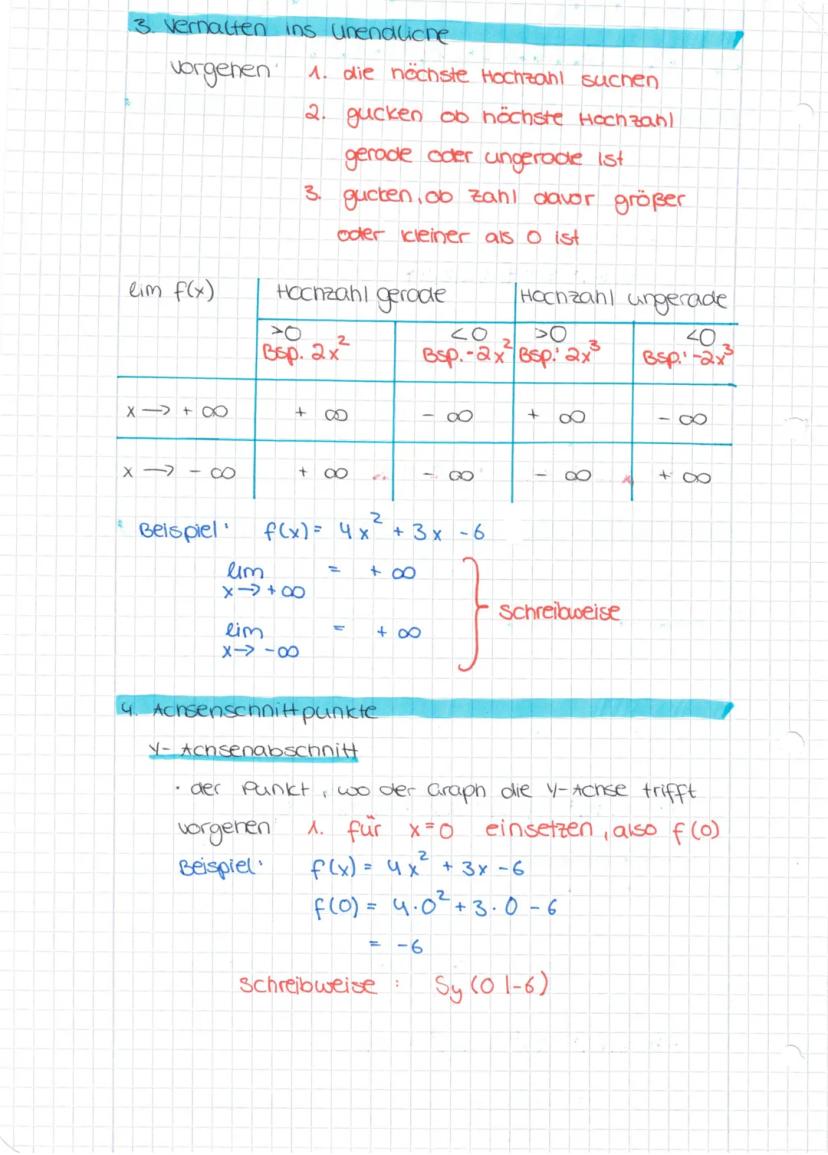 3. Verhalten ins Unendliche
Vorgehen: 1. die höchste Hochzahl suchen
2. gucken ob höchste Hochzahl
gerade oder ungerade ist
3. gucken, ob Zahl davor größer
oder kleiner als 0 ist
lim f(x) Hochzahl gerade Hochzahl ungerade
>0 <0 >0 <0
Bsp. 2x² Bsp. -2x² Bsp: 2x³ Bsp: -2x³
x → + ∞ + ∞ - ∞ + ∞ - ∞
x → - ∞ + ∞ - ∞ - ∞ + ∞
Beispiel: f(x) = 4x² + 3x - 6
lim = + ∞
x → + ∞
Schreibweise
lim = + ∞
x → - ∞
4. Achsenschnittpunkte
Y- Achsenabschnitt
· der Punkt, wo der Graph die Y-Achse trifft
Vorgehen 1. für x=0 einsetzen, also f(0)
Beispiel: f(x) = 4x² + 3x - 6
f(0) = 4·0² + 3·0 - 6
= -6
Schreibweise : Sy (0 |-6)